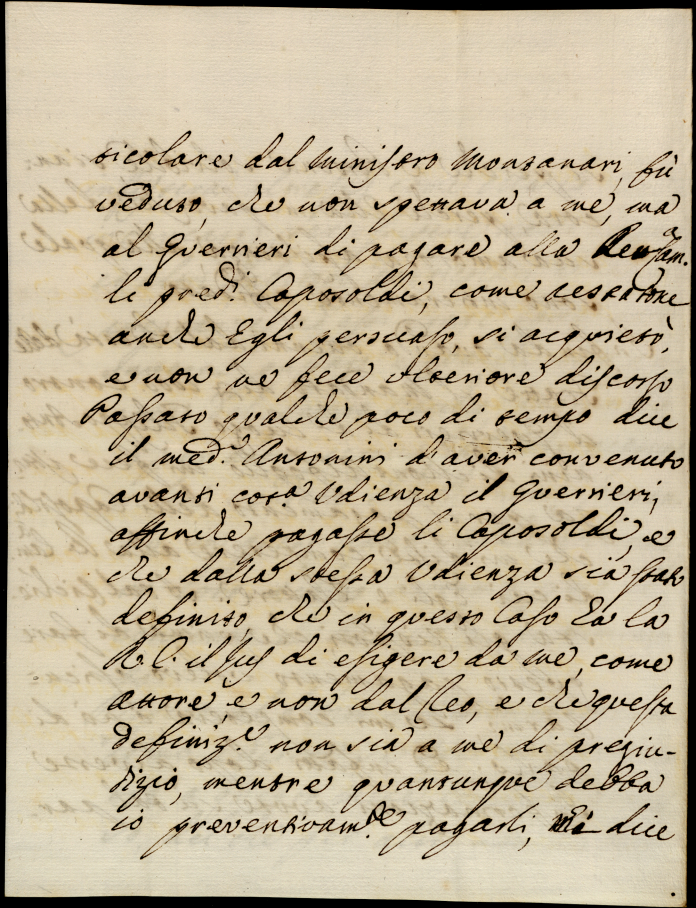 ticolare dal Ministro Montanari, fù
veduto, che non spettava a me, ma
al Guerrieri di pagare alla
li pred.i Caposoldi, come
anche Egli persuaso, si acquietò,
e non ne fece ulteriore discorso
Passato qualche poco di tempo dice
il med.o Antonini d'aver convenuto
avanti cot.a Udienza il Guerrieri,
affinche pagasse li Caposoldi, e
che dalla stessa Udienza sia stato
definito, che in questo Caso hà la
R. C. il Jus di esigere da me, come
attore, e non dal Reo, e che questa
definiz.e non sia a me di pregiu-
dizio, mentre quantunque debba
io preventivam.te pagarli, mi dice